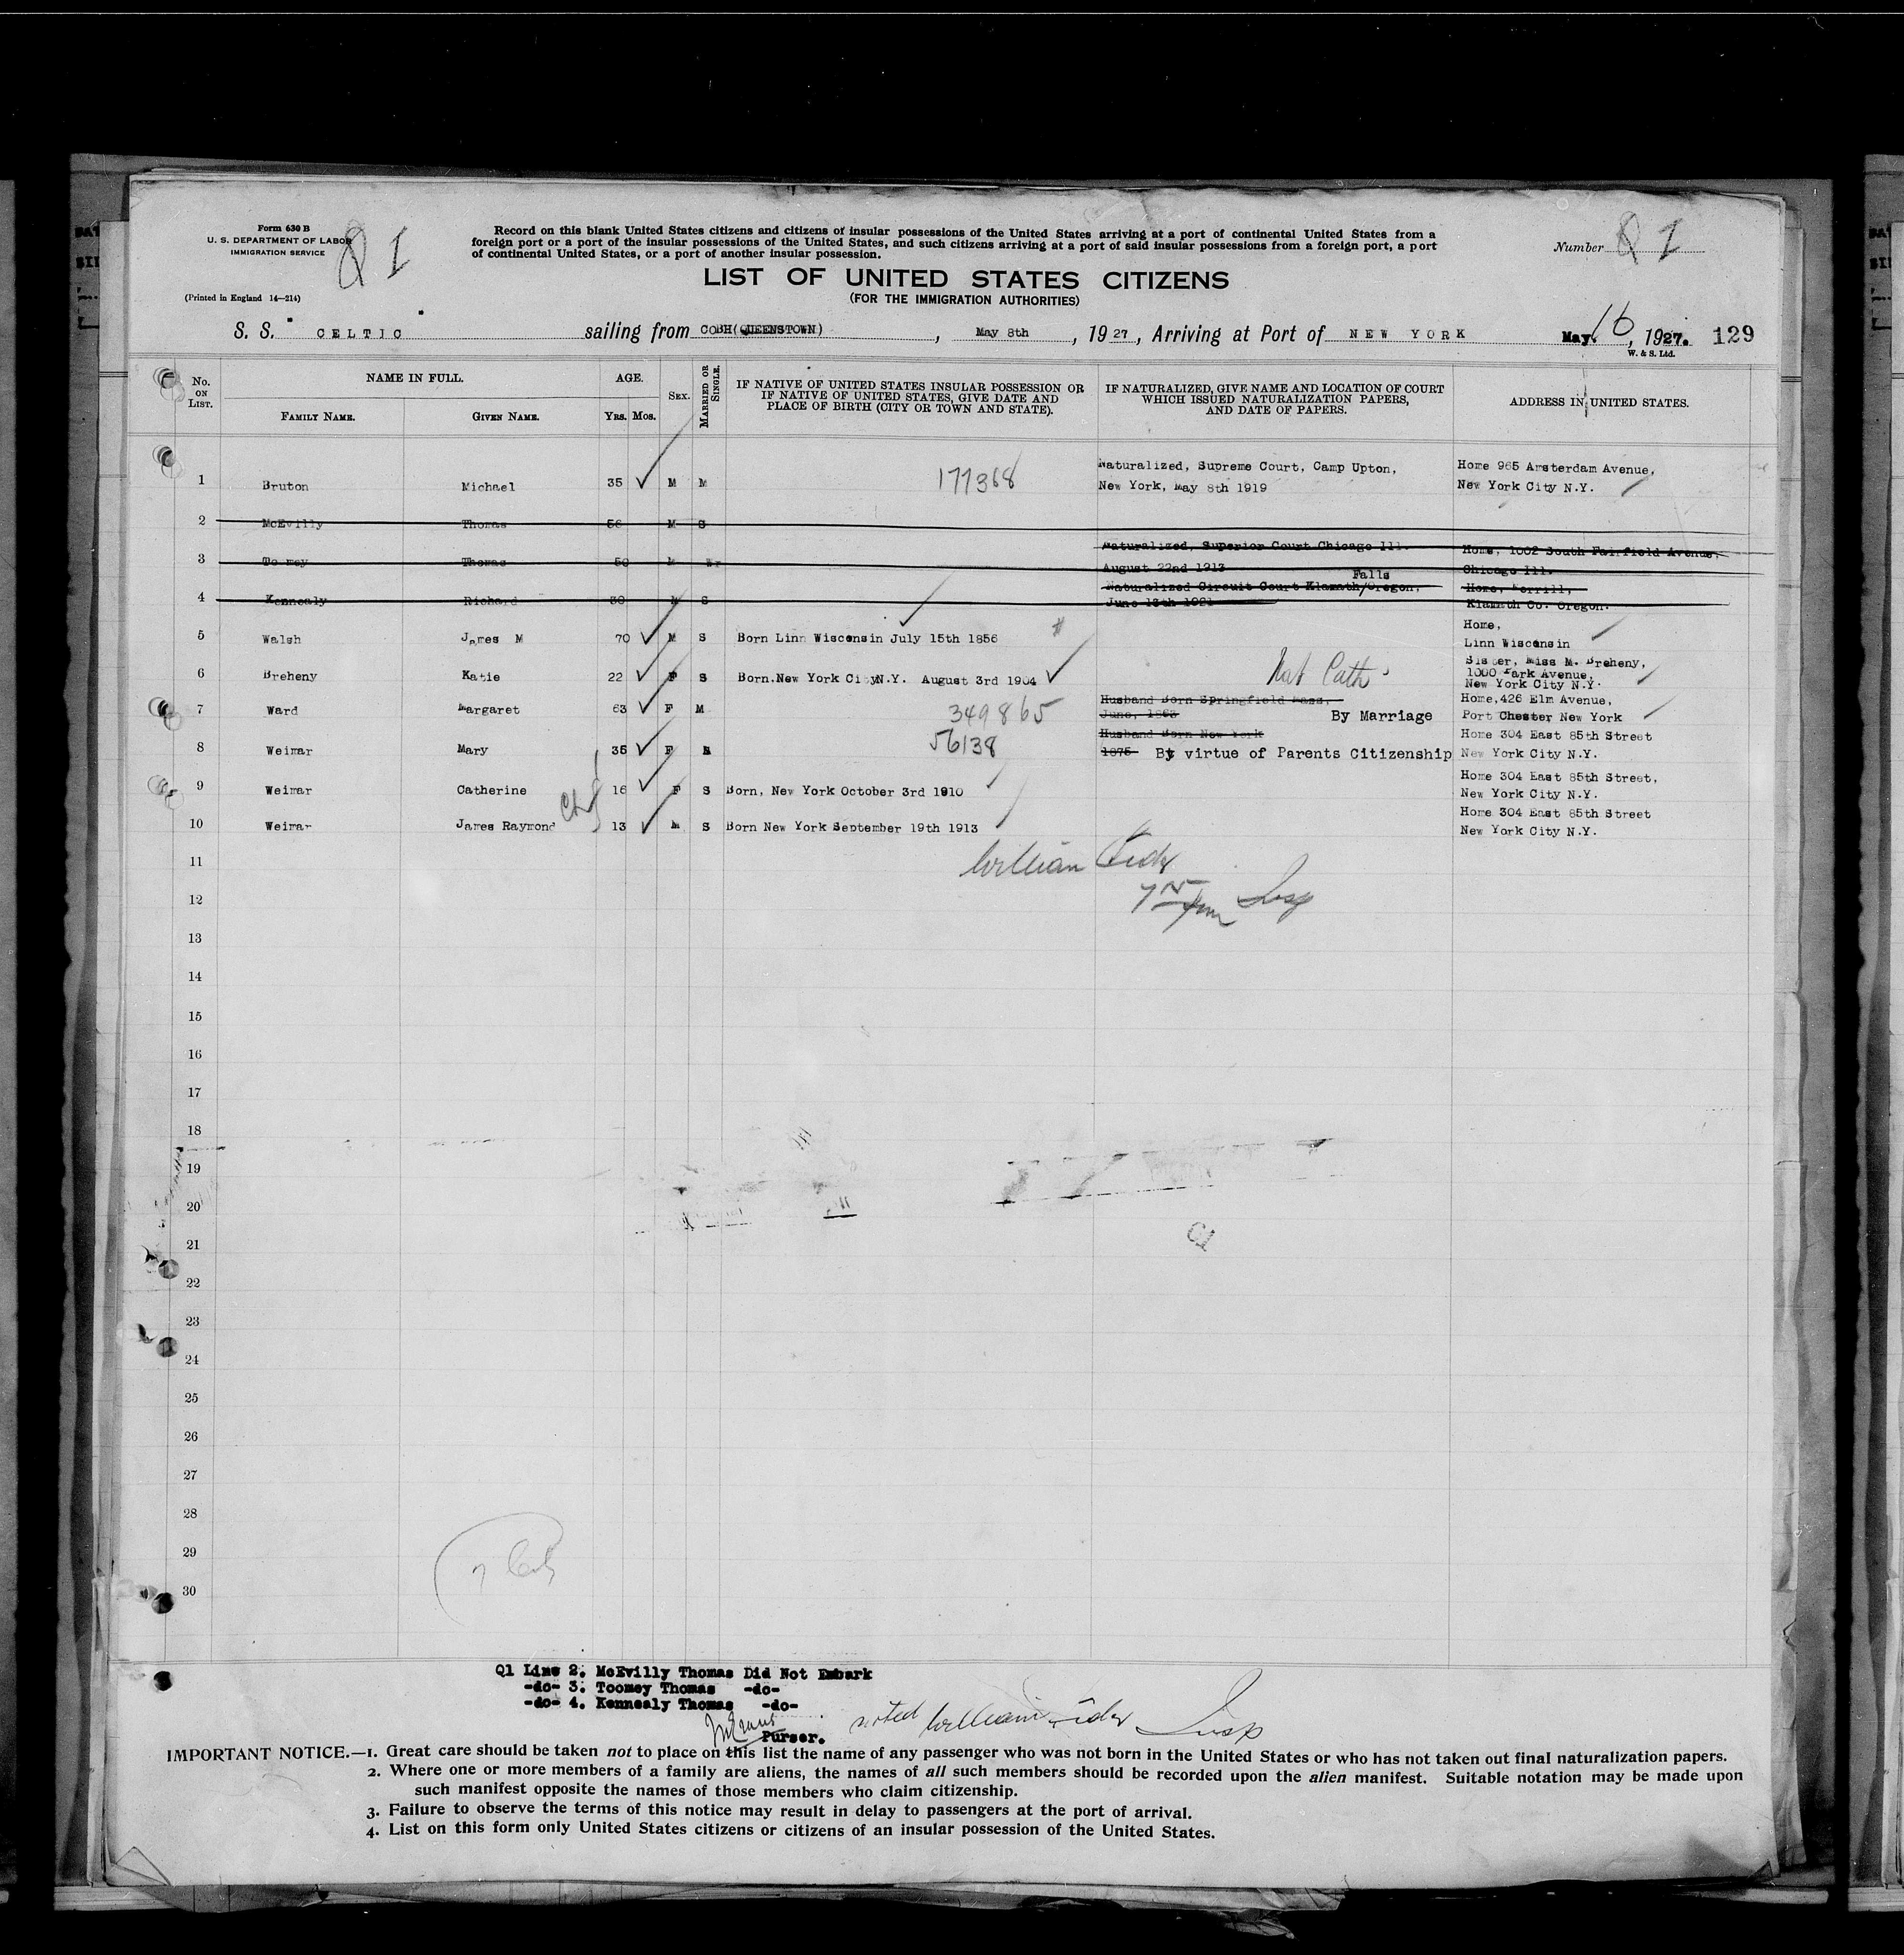 Form 630 B
U. S. DEPARTMENT OF LABOR
IMMIGRATION SERVICE
Q 1
(Printed in England 14—214)
Record on this blank United States citizens and citizens of insular possessions of the United States arriving at a port of continental United States from a
foreign port or a port of the insular possessions of the United States, and such citizens arriving at a port of said insular possessions from a foreign port, a port
of continental United States, or a port of another insular possession.
Number Q 1
LIST OF UNITED STATES CITIZENS
(FOR THE IMMIGRATION AUTHORITIES)
S. S. " CELTIC " sailing from COBH(QUEENSTOWN), May 8th, 1927, Arriving at Port of NEW YORK May 16, 1927. 129
W. & S. Ltd.
No. ON LIST. NAME IN FULL. FAMILY NAME. GIVEN NAME. AGE. YRS. MOS. SEX. MARRIED OR SINGLE.
IF NATIVE OF UNITED STATES INSULAR POSSESSION OR
IF NATIVE OF UNITED STATES, GIVE DATE AND
PLACE OF BIRTH (CITY OR TOWN AND STATE).
IF NATURALIZED, GIVE NAME AND LOCATION OF COURT
WHICH ISSUED NATURALIZATION PAPERS,
AND DATE OF PAPERS.
ADDRESS IN UNITED STATES.
1 Bruton Michael 35 M M 177368 Naturalized, Supreme Court, Camp Upton, Home 965 Amsterdam Avenue,
New York, May 8th 1919 New York City N.Y.
2 McEvilly Thomas 56 M S
3 Toomey Thomas 50 M Wr Naturalized, Superior Court Chicago Ill. Home, 1002 South Fairfield Avenue,
August 22nd 1913 Chicago Ill.
4 Kennealy Richard 30 M S Naturalized Circuit Court Klamath/Falls Oregon, Home, Merrill,
June 13th 1921 Klamath Co. Oregon.
5 Walsh James M 70 M S Born Linn Wisconsin July 15th 1856 Home,
Linn Wisconsin
6 Breheny Katie 22 F S Born.New York City N.Y. August 3rd 1904 Sister, Miss M. Breheny,
1000 Park Avenue,
New York City N.Y.
7 Ward Margaret 63 F M 349865 Husband Born Springfield Mass, Home,426 Elm Avenue,
June, 1863 By Marriage Port Chester New York
8 Weimar Mary 35 F 56138 Husband Born New York Home 304 East 85th Street
1875 By virtue of Parents Citizenship New York City N.Y.
9 Weimar Catherine 16 F S Born, New York October 3rd 1910 Home 304 East 85th Street,
New York City N.Y.
10 Weimar James Raymond 13 M S Born New York September 19th 1913 Home 304 East 85th Street
New York City N.Y.
11 William
12 Insp
13
14
15
16
17
18
19
20
21
22
23
24
25
26
27
28
29
30
Q1 Line 2. McEvilly Thomas Did Not Embark
-do- 3. Toomey Thomas -do-
-do- 4. Kennealy Thomas -do-
Purser. noted William Insp
IMPORTANT NOTICE.—1. Great care should be taken not to place on this list the name of any passenger who was not born in the United States or who has not taken out final naturalization papers.
2. Where one or more members of a family are aliens, the names of all such members should be recorded upon the alien manifest. Suitable notation may be made upon
such manifest opposite the names of those members who claim citizenship.
3. Failure to observe the terms of this notice may result in delay to passengers at the port of arrival.
4. List on this form only United States citizens or citizens of an insular possession of the United States.